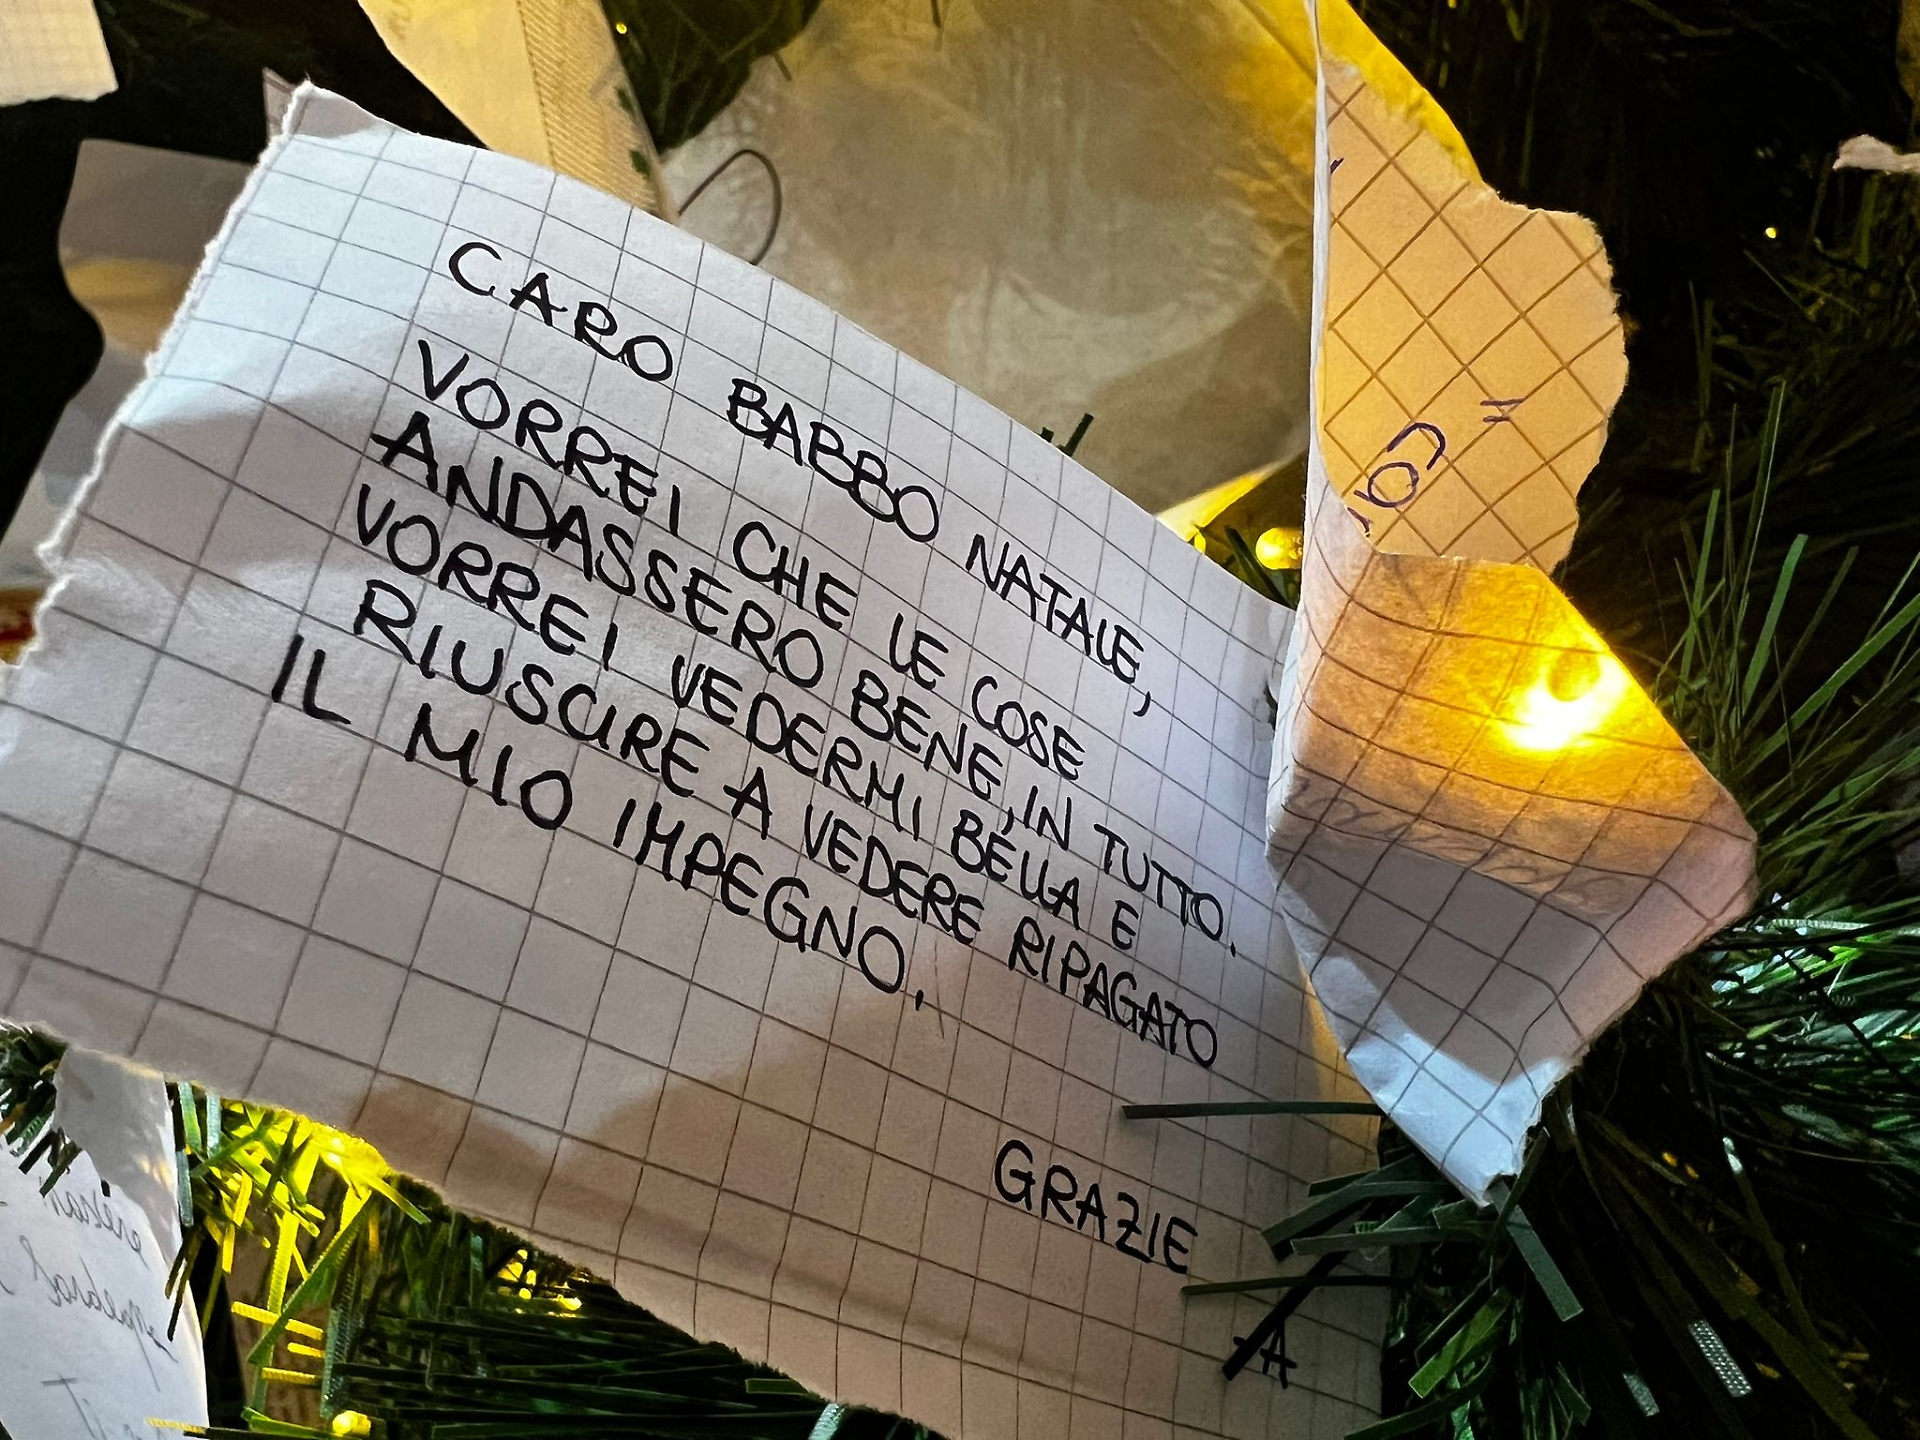 CARO BABBO NATALE,
VORREI CHE LE COSE
ANDASSERO BENE, IN TUTTO.
VORREI VEDERMI BELLA E
RIUSCIRE A VEDERE RIPAGATO
IL MIO IMPEGNO.
GRAZIE
-A